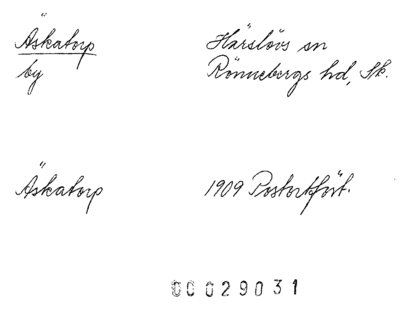 Äskatorp Härslövs sn
by Rönnebergs hd, Sk.
Äskatorp 1909 Postortfört.
00029031